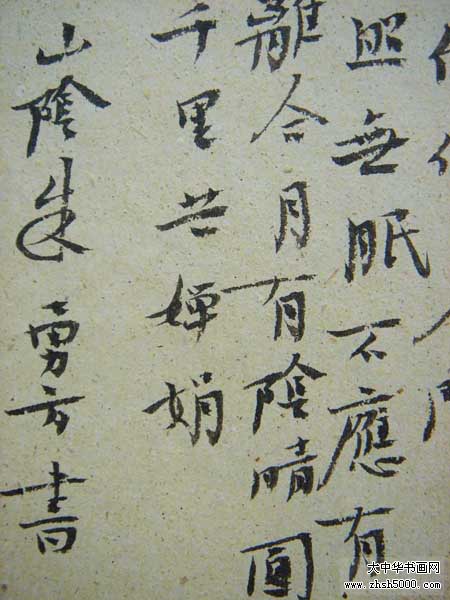 照無眠不應有
離合月有陰晴圓
千里共嬋娟
山陰朱勇方書
大中华书画网
www.zhsh5000.com